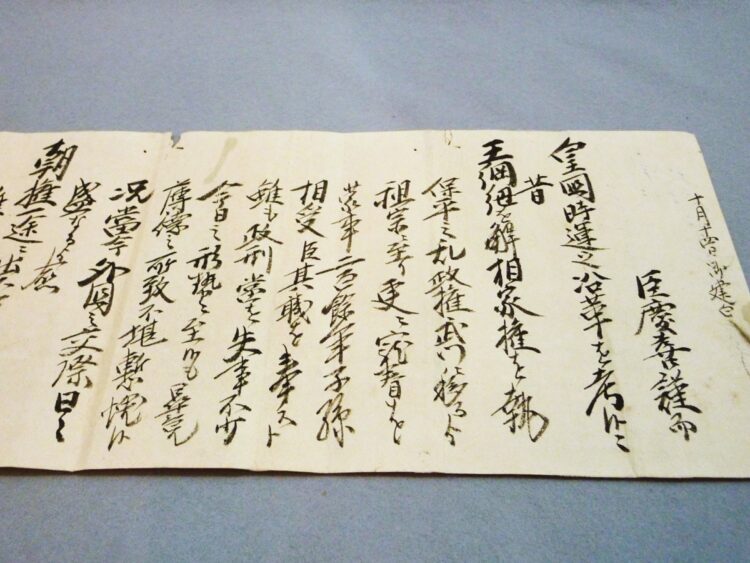 十月十四日御建白
臣慶喜謹而
皇國時運之沿革を考候ニ
昔
王綱紐を解相家権を執
保平之乱政権武門ニ移てより
祖宗ニ至り更ニ寵眷を
蒙二百餘年子孫
相受臣其職を奉スと
雖も政刑當を失事不少
今日之形勢ニ至候も畢竟
薄徳之所致不堪慙懼候
況當今外國之交際日ニ
盛なるより愈
朝権一途ニ出